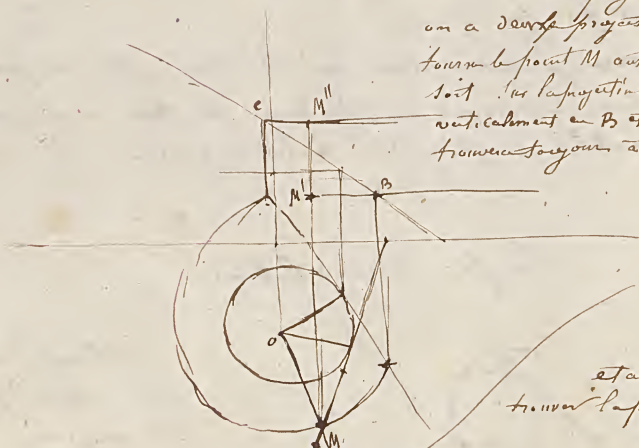 on a deux projec
tourne le point M au
soit sur la projection
verticalement en B et
trouvera toujours à
C
M"
M'
B
O
M
et a
trouver la p